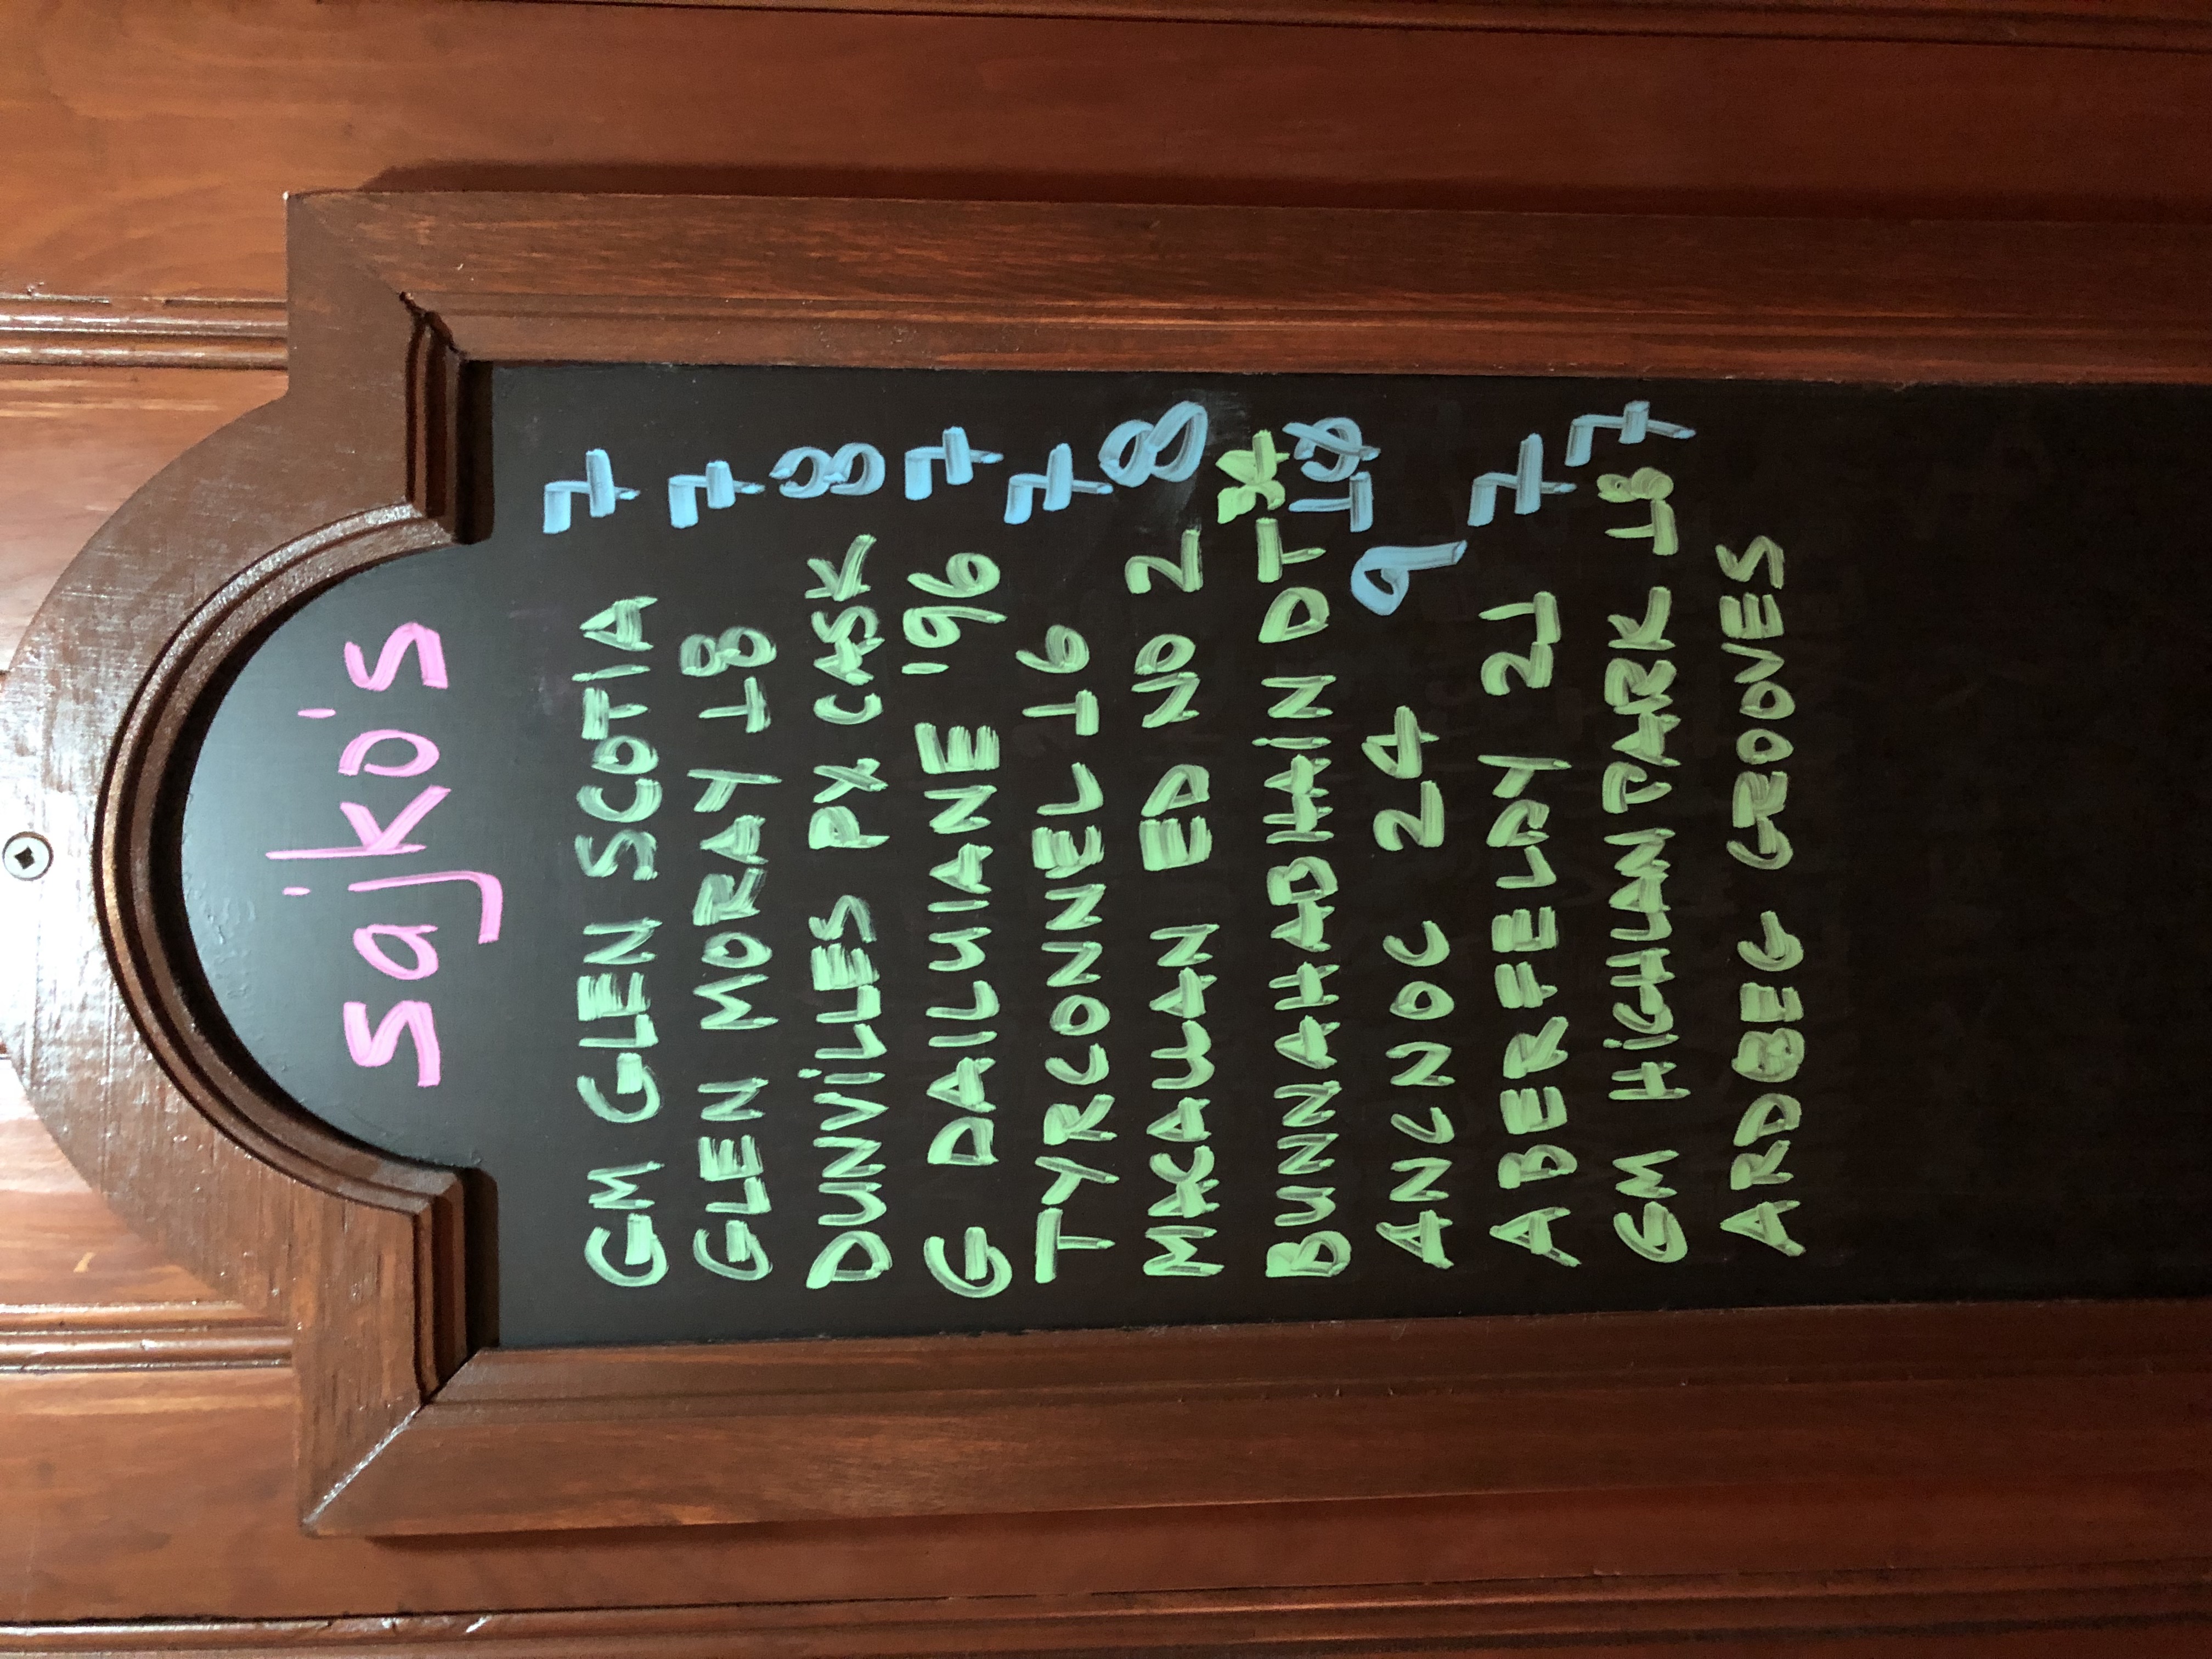 sajko's
GM GLEN SCOTIA 7
GLEN MORAY 18 7
DUNVILLES PX CASK 8
G DAILUIANE '96 7
TYRCONNEL 16 7
MACALLAN ED NO 2 8
BUNNAHABHAIN DT 10
ANCNOC 24 9
ABERFELDY 21 7
GM HIGHLAN PARK 18 7
ARDBEG GROOVES